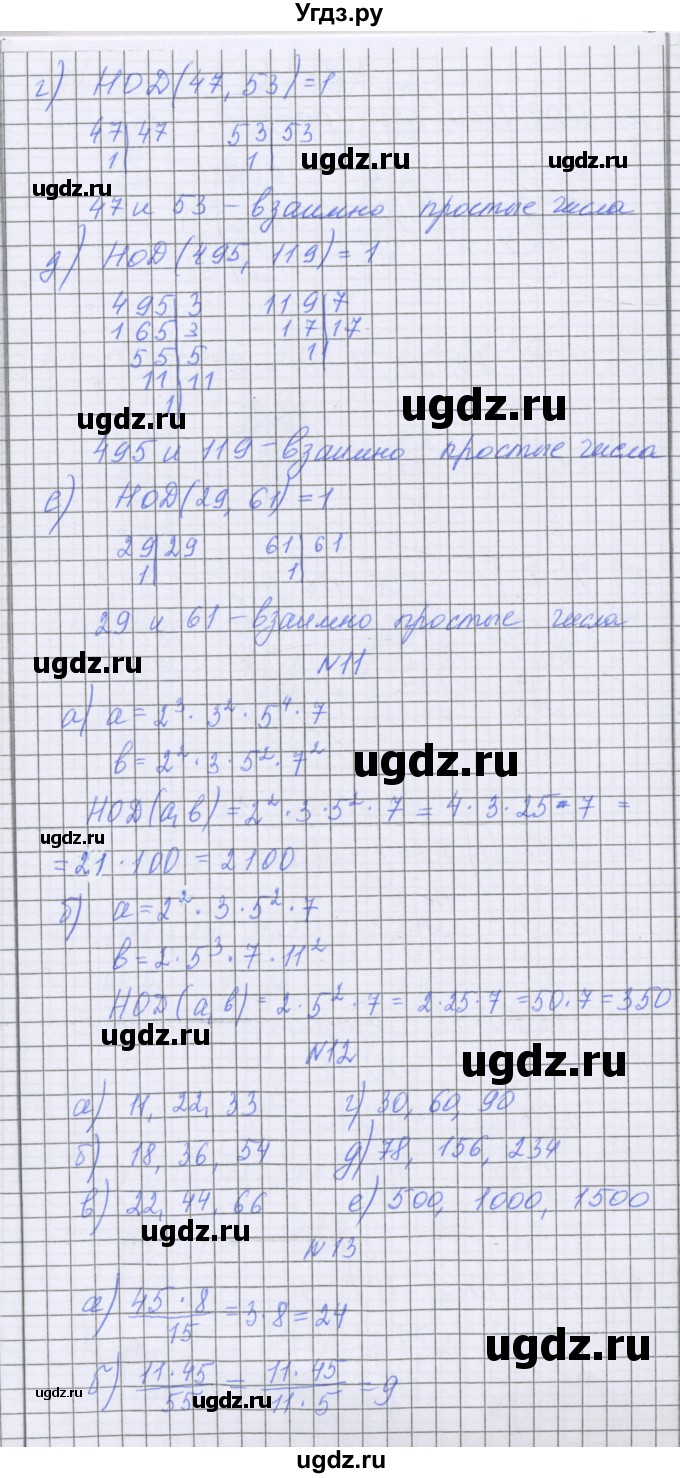 Угдз.ру
г) НОД(47, 53)=1
47 | 47 53 | 53
1 | 1 |
ugdz.ru
ugdz.ru
ugdz.ru
47 и 53 - взаимно простые числа
д) НОД(495, 119)=1
495 | 3 119 | 7
165 | 3 17 | 17
55 | 5 1 |
11 | 11
1 |
ugdz.ru
ugdz.ru
495 и 119 - взаимно простые числа
е) НОД(29, 61)=1
29 | 29 61 | 61
1 | 1 |
29 и 61 - взаимно простые числа
ugdz.ru
№11
а) a = 2³ · 3² · 5⁴ · 7
в = 2² · 3 · 5² · 7²
ugdz.ru
НОД(a,в) = 2² · 3 · 5² · 7 = 4 · 3 · 25 · 7 =
ugdz.ru
= 21 · 100 = 2100
б) a = 2² · 3 · 5² · 7
в = 2 · 5³ · 7 · 11²
НОД(a,в) = 2 · 5² · 7 = 2·25·7 = 50·7 = 350
ugdz.ru
№12
ugdz.ru
а) 11, 22, 33 г) 30, 60, 90
б) 18, 36, 54 д) 78, 156, 234
в) 22, 44, 66 е) 500, 1000, 1500
ugdz.ru
№13
а) 45·8/15 = 3·8 = 24
ugdz.ru
б) 11·45/55 = 11·45/11·5 = 9
ugdz.ru
ugdz.ru
ugdz.ru